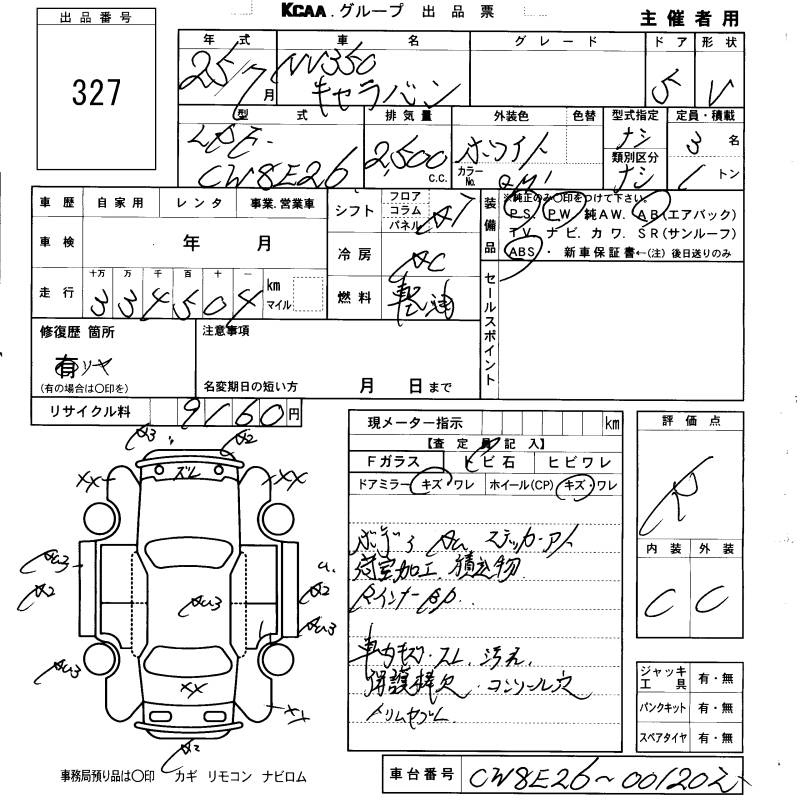 KCAA.グループ 出品票
主催者用
出品番号
327
年式 車名 グレード ドア 形状
25/7月 NV350 キャラバン 5 V
型式 排気量 外装色 色替 型式指定 定員・積載
LDF-CW8E26 2,500 C.C. ホワイト カラーNo. QM1 ナシ 3名
類別区分 ナシ 1トン
車歴 自家用 レンタ 事業.営業車
シフト フロア コラム パネル AT
装備品 ※純正のみ○印をつけて下さい。
PS. PW 純AW. AB(エアバック)
TV ナビ.カワ.SR(サンルーフ)
ABS・新車保証書←(注)後日送りのみ
車検 年 月
冷房 AC
走行 十万 万 千 百 十 一 km マイル
334504
燃料 軽油
セールスポイント
修復歴 箇所
有
(有の場合は○印を)
注意事項
名変期日の短い方 月 日まで
リサイクル料 9160円
現メーター指示 km
【査定員記入】
Fガラス トビ石 ヒビワレ
ドアミラー キズ・ワレ ホイール(CP) キズ・ワレ
ボデー AU ステッカーアト
荷室加工、積
Rインナー BP.
スレ 汚れ.
欠 コンソール穴
評価点
R
内装 外装
C C
ジャッキ工具 有・無
パンクキット 有・無
スペアタイヤ 有・無
A3 A2
XX ズレ XX
AU3
A2 AU3 A2
AU3
AU3
XX
XX
A2
事務局預り品は○印 カギ リモコン ナビロム
車台番号 CW8E26~001202